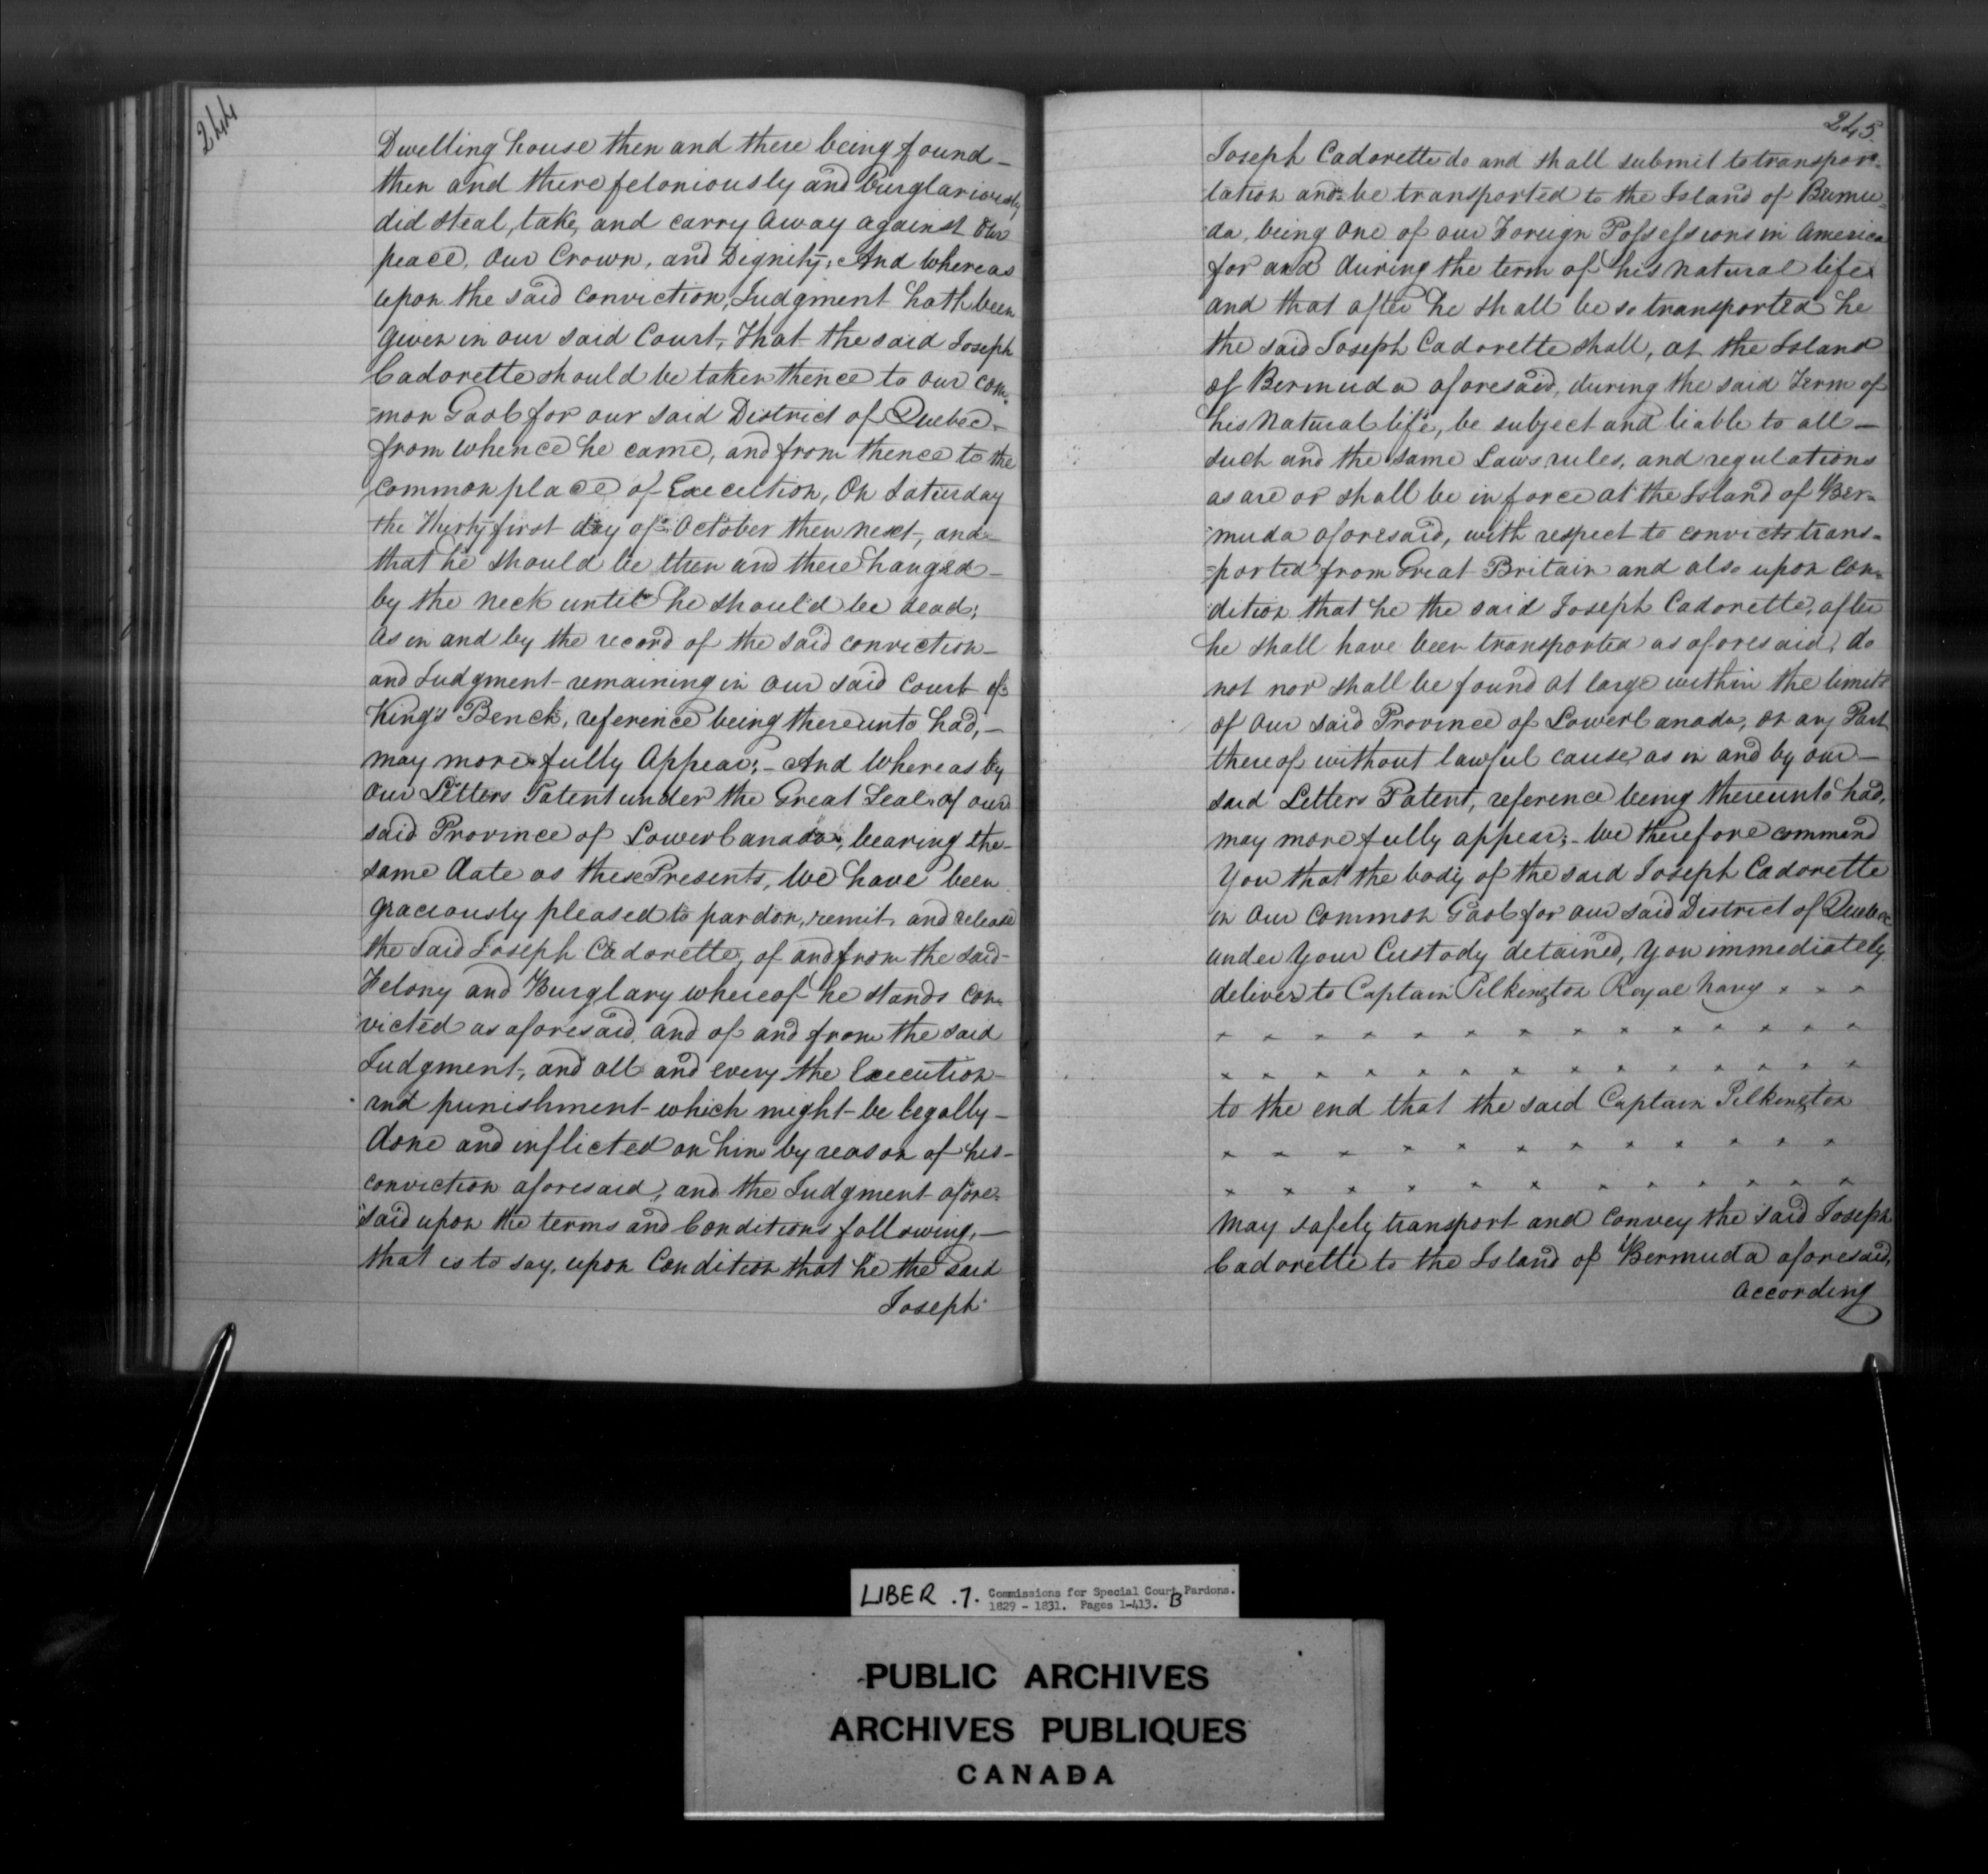 244
Dwelling house then and there being found_
then and there feloniously and burglariously
did steal, take, and carry away against our
peace, Our Crown, and Dignity; And whereas
upon the said conviction, Judgment hath been
given in our said Court, That the said Joseph
Cadorette should be taken thence to our com=
=mon Gaol for our said District of Quebec_
from whence he came, and from thence to the
common place of Execution, On Saturday
the Thirty first day of October then next, and
that he should be then and there hanged_
by the neck until he should be dead;
as in and by the record of the said conviction_
and Judgment remaining in our said Court of
King's Bench, reference being thereunto had,_
may more fully Appear;_ And Whereas by
Our Letters Patent under the Great Seal of our
said Province of Lower Canada, bearing the
same date as these Presents, We have been
graciously pleased to pardon, remit, and release
the said Joseph Cadorette, of and from the said
Felony and Burglary whereof he stands con=
victed as aforesaid, and of and from the said
Judgment, and all and every the Execution_
and punishment which might be legally_
done and inflicted on him by reason of his_
conviction aforesaid, and the Judgment afore=
"said upon the terms and Conditions following,_
that is to say, upon Condition that he the said
Joseph
245
Joseph Cadorette do and shall submit to transpor=
tation and be transported to the Island of Bermu=
"da, being One of our Foreign Possessions in America
for and during the term of his natural life
and that after he shall be so transported he
the said Joseph Cadorette shall, at the Island
of Bermuda aforesaid, during the said Term of
his Natural life, be subject and liable to all_
such and the same Laws, rules, and regulations
as are or shall be in force at the Island of Ber=
"muda aforesaid, with respect to convicts trans=
=ported from Great Britain and also upon Con=
"dition that he the said Joseph Cadorette, after
he shall have been transported as aforesaid, do
not nor shall be found at large within the limits
of Our said Province of Lower Canada, or any Part
thereof without lawful cause, as in and by our_
said Letters Patent, reference being thereunto had,
may more fully appear;_ We therefore command
You that the body of the said Joseph Cadorette
in Our Common Gaol for our said District of Quebec
under Your Custody detained, You immediately
deliver to Captain Pilkington Royal Navy x x x
x x x x x x x x x x x x x x
x x x x x x x x x x x x x x
to the end that the said Captain Pilkington
x x x x x x x x x x x x
x x x x x x x x x x x x
may safely transport and convey the said Joseph
Cadorette to the Island of Bermuda aforesaid,
according
LIBER .7. Commissions for Special Court Pardons.
1829 - 1831. Pages 1-413. B
PUBLIC ARCHIVES
ARCHIVES PUBLIQUES
CANADA